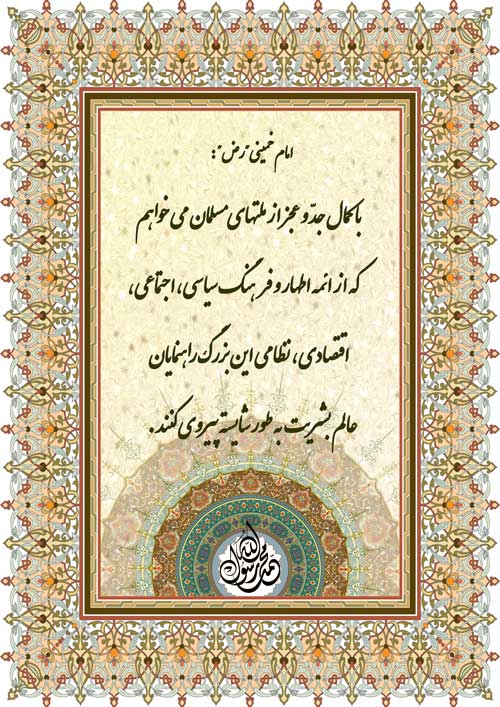 امام خمینی "رض":
با کمال جدّ و عجز از ملتهای مسلمان می خواهم
که از ائمه اطهار و فرهنگ سیاسی، اجتماعی،
اقتصادی، نظامی این بزرگ راهنمایان
عالم بشریت به طور شایسته پیروی کنند.
محمد رسول الله